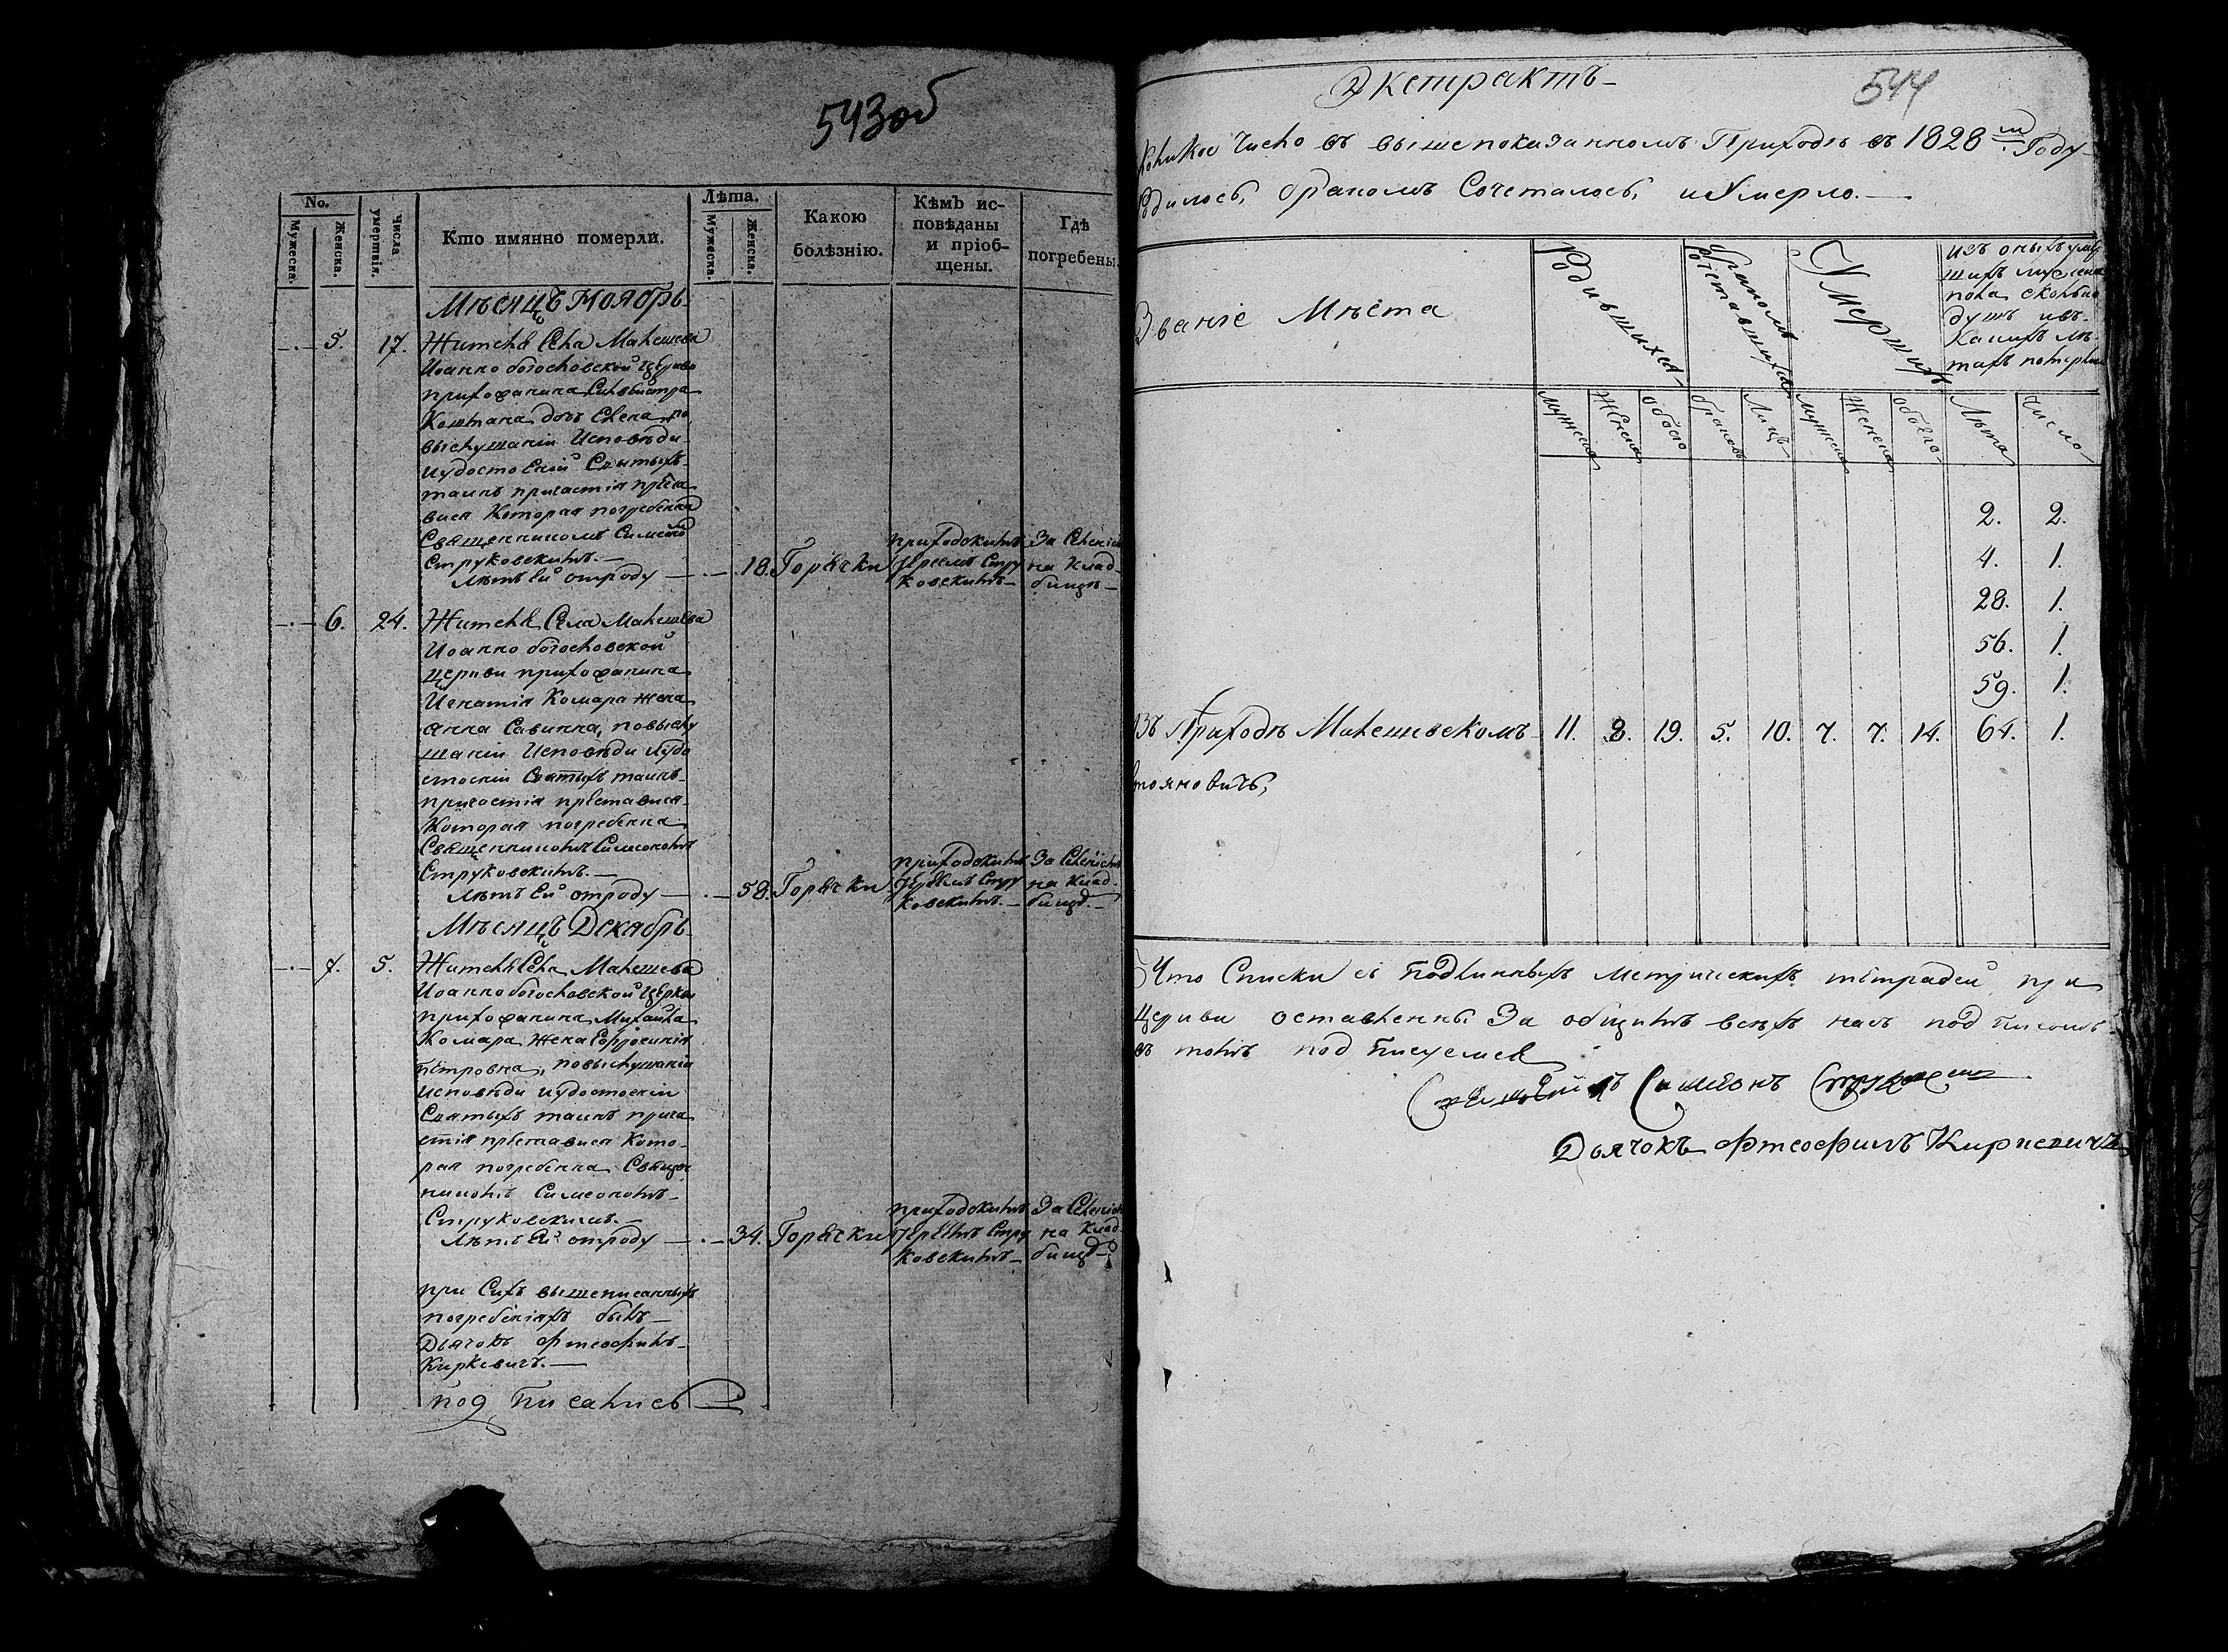 543об
No.
Мужеска.
Женска.
Числа умертвія.
Кто имянно померли.
Лѣта.
Мужеска.
Женска.
Какою
болѣзнію.
Кѣмъ ис-
повѣданы
и пріоб-
щены.
Гдѣ
погребены.
Мѣсяцъ Ноябрь
5. 17. Жителя Села Малешева
Иоанно богословской церкви
прихожанина
дочь Елена по
выслушаніи Исповѣди
иудостоеніи Святыхъ
таинъ причастія преста
вися Которая погребенна
Священникомъ Симеоно
Струковскимъ.—
Лѣтъ Ей отроду — 18. Горячки
приходскимъ
Іереемъ Стру
ковскимъ—
За Селеніем
на клад-
бищѣ—
6. 24. Жителя Села Малешева
Иоанно богословской
церкви прихожанина
Игнатія Комара жена
Анна Савинна, повыслу
шаніи Исповѣди иудо
стоеніи Святыхъ таинъ
причастія преставися
Которая погребенна
Священникомъ Симеономъ
Струковскимъ.—
Лѣтъ Ей отроду — 58. Горячки
приходскимъ
Іереемъ Стру
ковскимъ.—
За Селеніем
на клад-
бищѣ.—
Мѣсяцъ Декабрь
7. 5. Жителя Села Малешева
Иоанно богословской церкви
прихожанина Михайла
Комара жена Ефросинія
Петровна, повыслушаніи
исповѣди иудостоеніи
Святыхъ таинъ прича
стія преставися Кото-
рая погребенна Священ
никомъ Симеономъ
Струковскимъ.—
Лѣтъ Ей отроду — 34. Горячки
приходскимъ
Іереемъ Стру
ковскимъ—
За Селеніем
на клад
бищѣ—
при Сихъ вышеписанныхъ
погребеніяхъ былъ
Дьячокъ Фтеофилъ
Киркевичъ.—
под писались
Экстрактъ
544
Коликое число въ вышепоказанномъ Приходѣ въ 1828м Году
родилось, бракомъ Сочеталось, и Умерло.—
Званіе Мѣста
Родившихся
бракомъ сочетавшихся
Умершихъ
изъ оныхъ умер
шихъ мужеска
пола сколько
душъ ивъ
Каихъ лѣ-
тахъ померли
мужеска
женска
обоего
браковъ
Лицъ
мужеска
женска
обоего
Лѣта
число
2. 2.
4. 1.
28. 1.
56. 1.
59. 1.
Въ Приходѣ Малешевскомъ 11. 8. 19. 5. 10. 7. 7. 14. 64. 1.
Что Списки съ подлинныхъ метрическихъ тетрадей при
церкви оставленны За общимъ всѣхъ насъ под писомъ
въ томъ под писуемся
Симеонъ
Дьячокъ Фтеофилъ Киркевичъ